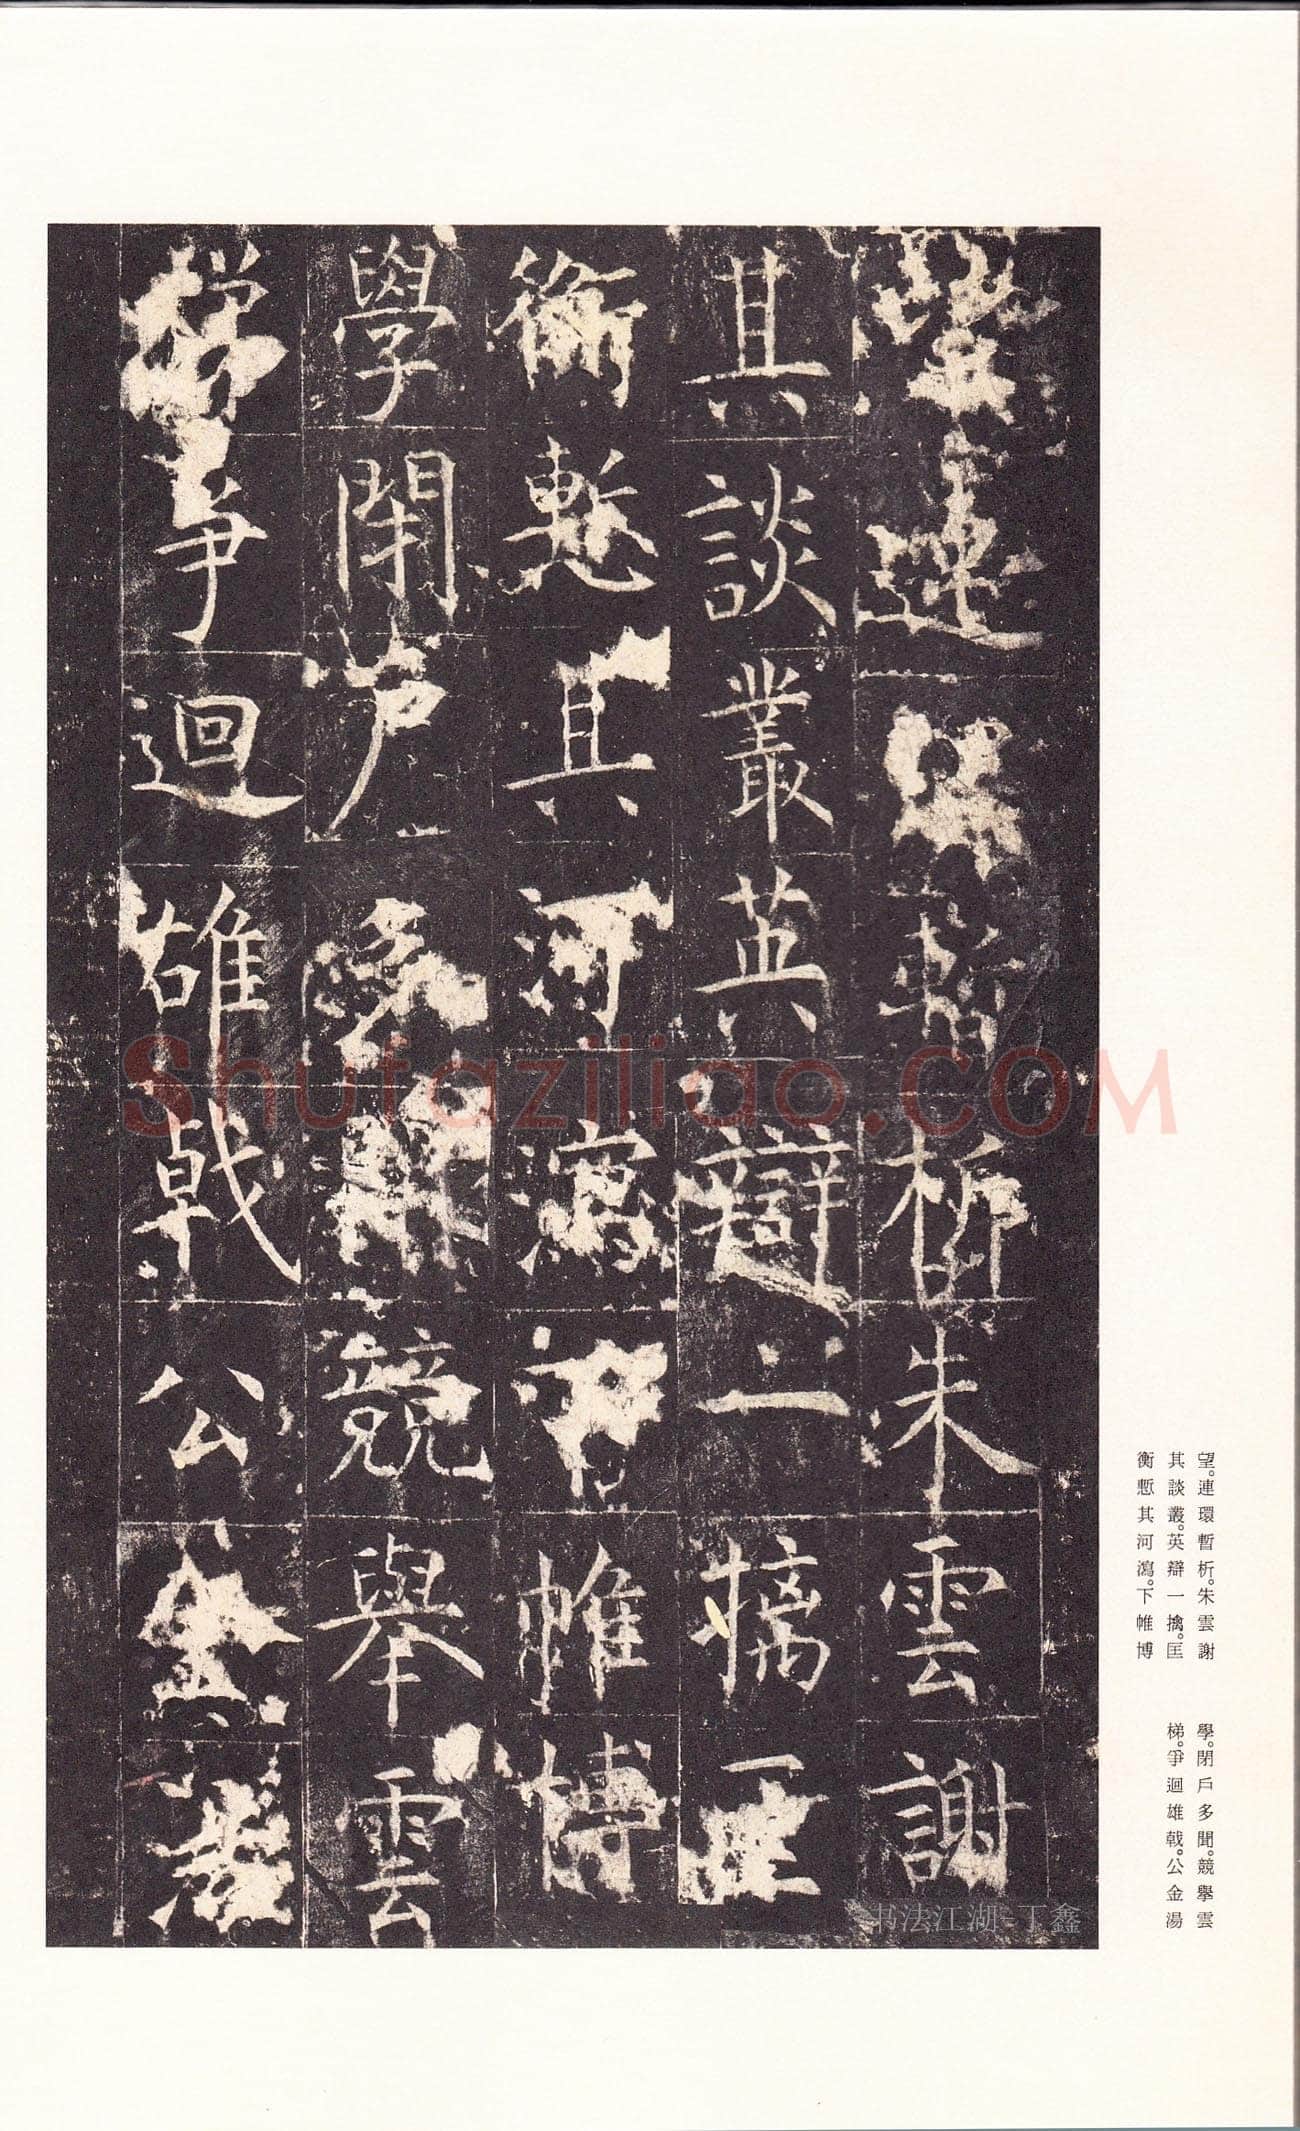 望連環暫析朱雲謝
其談叢英辯一摛匡
衡慙其河瀉下帷博
學閉戶多聞競舉雲
梯爭迴雄戟公金湯
望。連環暫析。朱雲謝
其談叢。英辯一擒。匡
衡慙其河瀉。下帷博
學。閉戶多聞。競舉雲
梯。爭迴雄戟。公金湯
Shufaziliao.COM
书法江湖-丁鑫